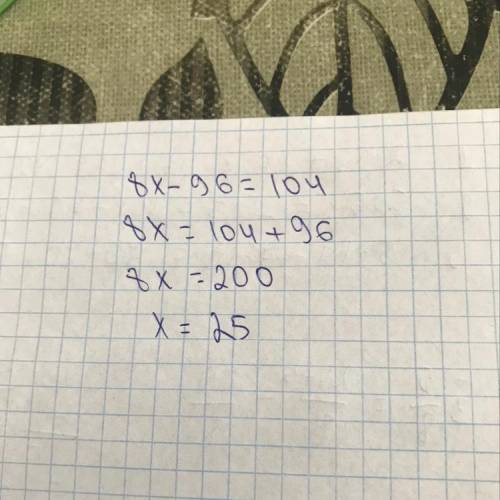 8x - 96 = 104
8x = 104 + 96
8x = 200
x = 25